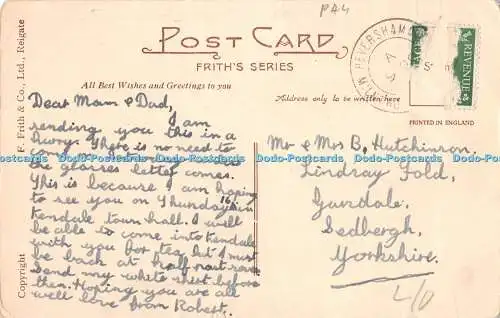 P44
POST CARD
FRITH'S SERIES
All Best Wishes and Greetings to you
Address only to be written here
PRINTED IN ENGLAND
HEVERSHAM
REVENUE
Copyright F. Frith & Co., Ltd., Reigate
Dear Mam & Dad,
I am
sending you this in a
hurry. There is no need to
the glasses letter comes.
This is because I am hoping
to see you on Thursday 16 in
Kendale town hall. I will
be able to come into Kendale
with you for tea but I must
be back at half past
Send my white shirt before
then. Hoping you are all
well love from Robert.
Mr & Mrs B, Hutchinson,
Lindray Fold,
Gawdale,
Sedbergh,
Yorkshire.
L/D
Dodo-Postcards Dodo-Postcards Dodo-Postcards Dodo-Postcards Dodo-Postcards